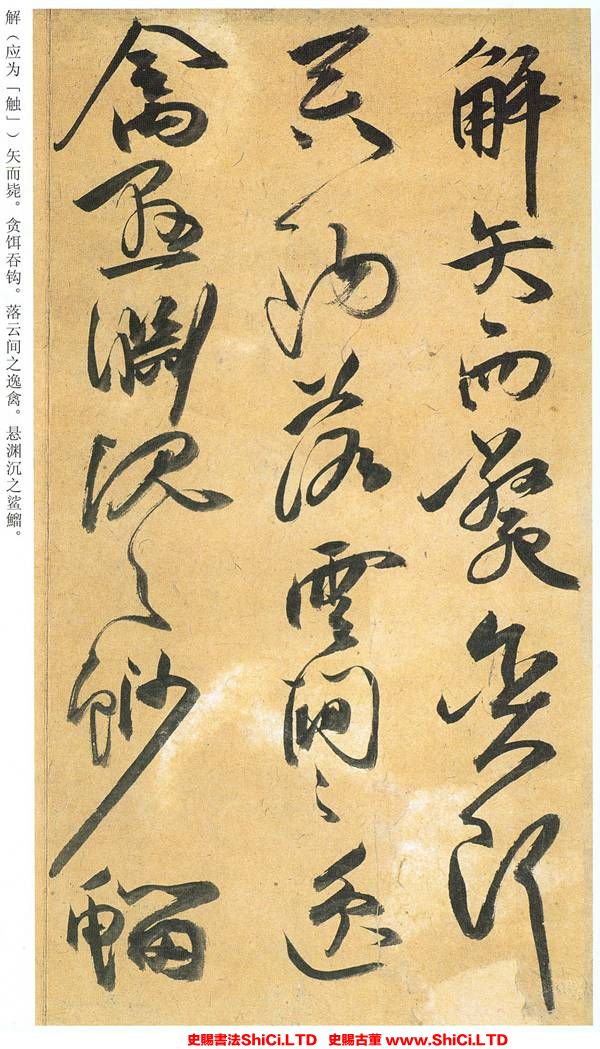 解矢而斃貪餌
吞鉤落雲間之逸
禽懸淵沉之魦鰡
解（应为「触」）矢而毙。贪饵吞钩。落云间之逸禽。悬渊沉之鲨鰡。
史賜書法ShiCi.LTD 史賜古董 www.ShiCi.LTD